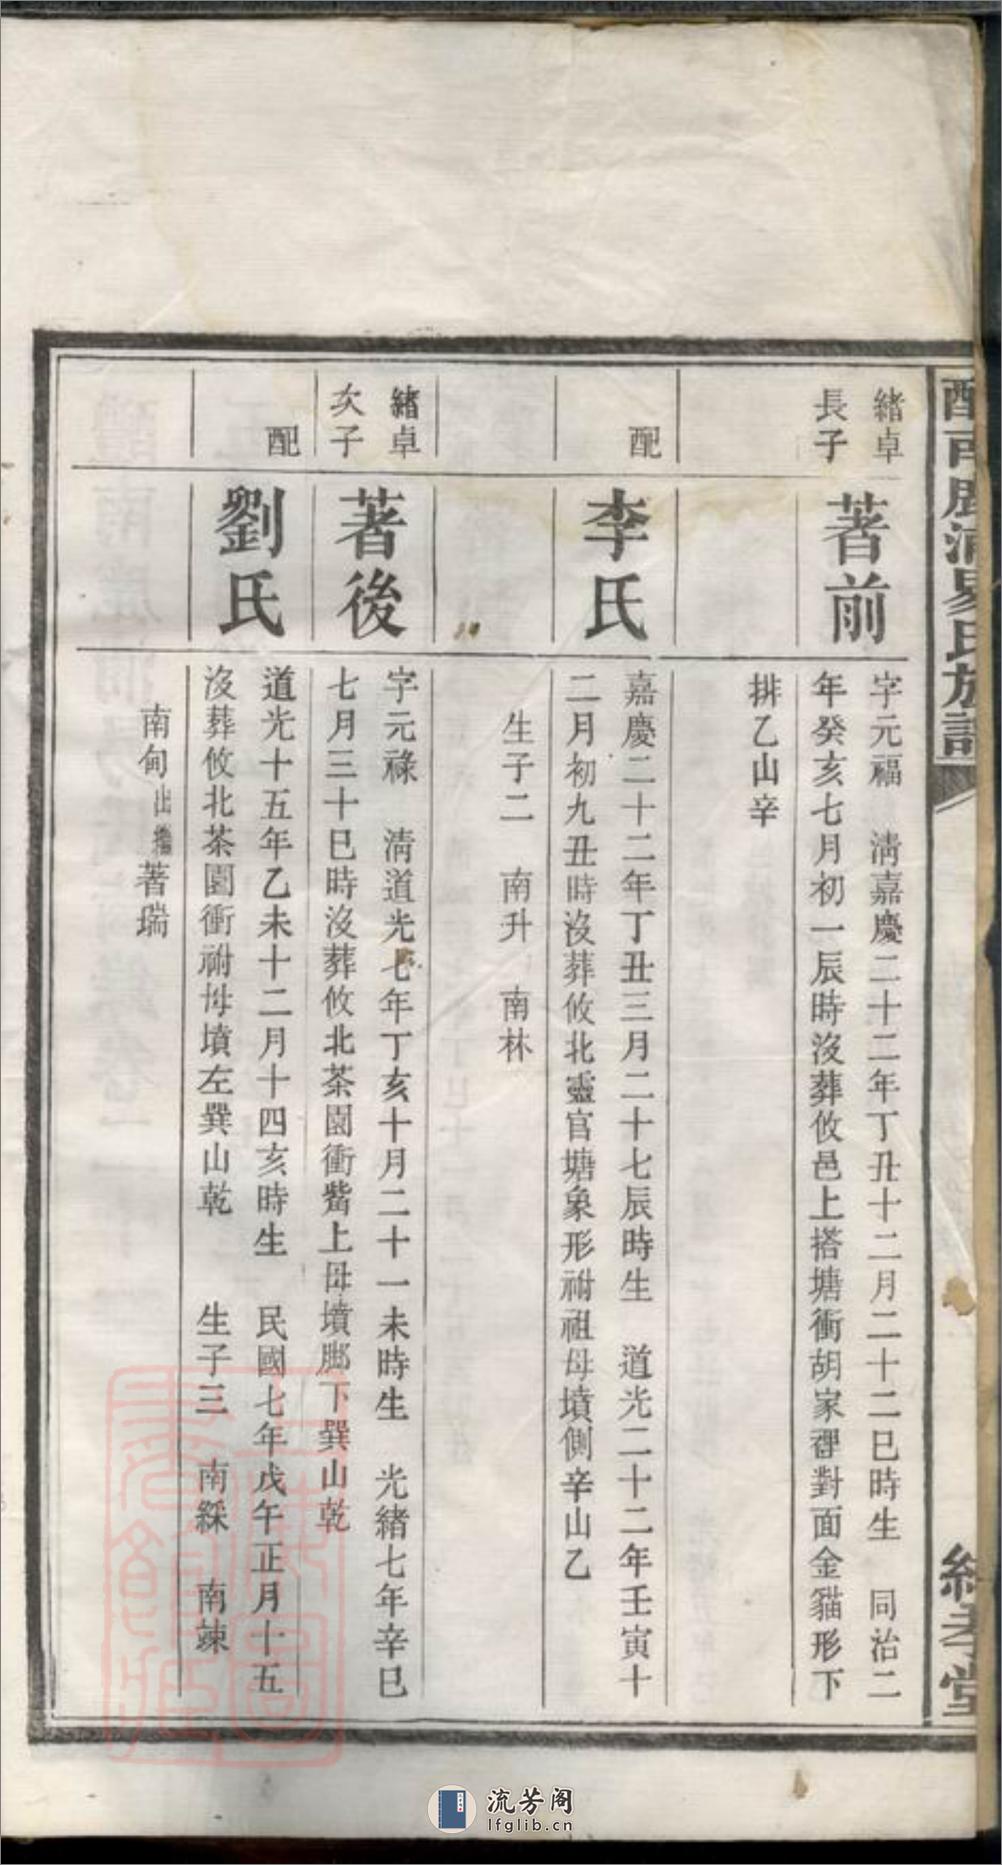 醴南鹿洞易氏族譜
緒孝堂
緒卓
長子
著前
字元福　清嘉慶二十二年丁丑十二月二十二巳時生　同治二
年癸亥七月初一辰時沒葬攸邑上搭塘衝胡家裡對面金貓形下
排乙山辛
配
李氏
嘉慶二十二年丁丑三月二十七辰時生　道光二十二年壬寅十
二月初九丑時沒葬攸北靈官塘象形祔祖母墳側辛山乙
生子二　南升　南林
緒卓
次子
著後
字元祿　清道光七年丁亥十月二十一未時生　光緒七年辛巳
七月三十巳時沒葬攸北茶園衝觜上母墳腳下巽山乾
配
劉氏
道光十五年乙未十二月十四亥時生　民國七年戊午正月十五
沒葬攸北茶園衝祔母墳左巽山乾　生子三　南綵　南竦
南甸出繼著瑞
流芳阁
lfglib.cn